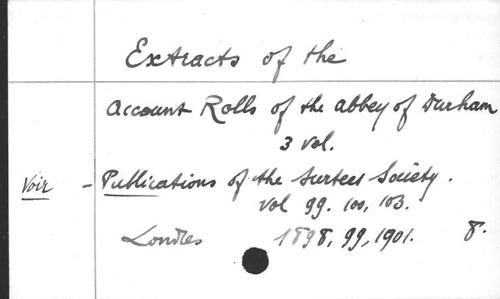 Extracts of the
account Rolls of the abbey of Durham
3 vol.
Voir - Publications of the Surtees Society.
vol 99. 100, 103.
Londres 1898, 99, 1901. 8.